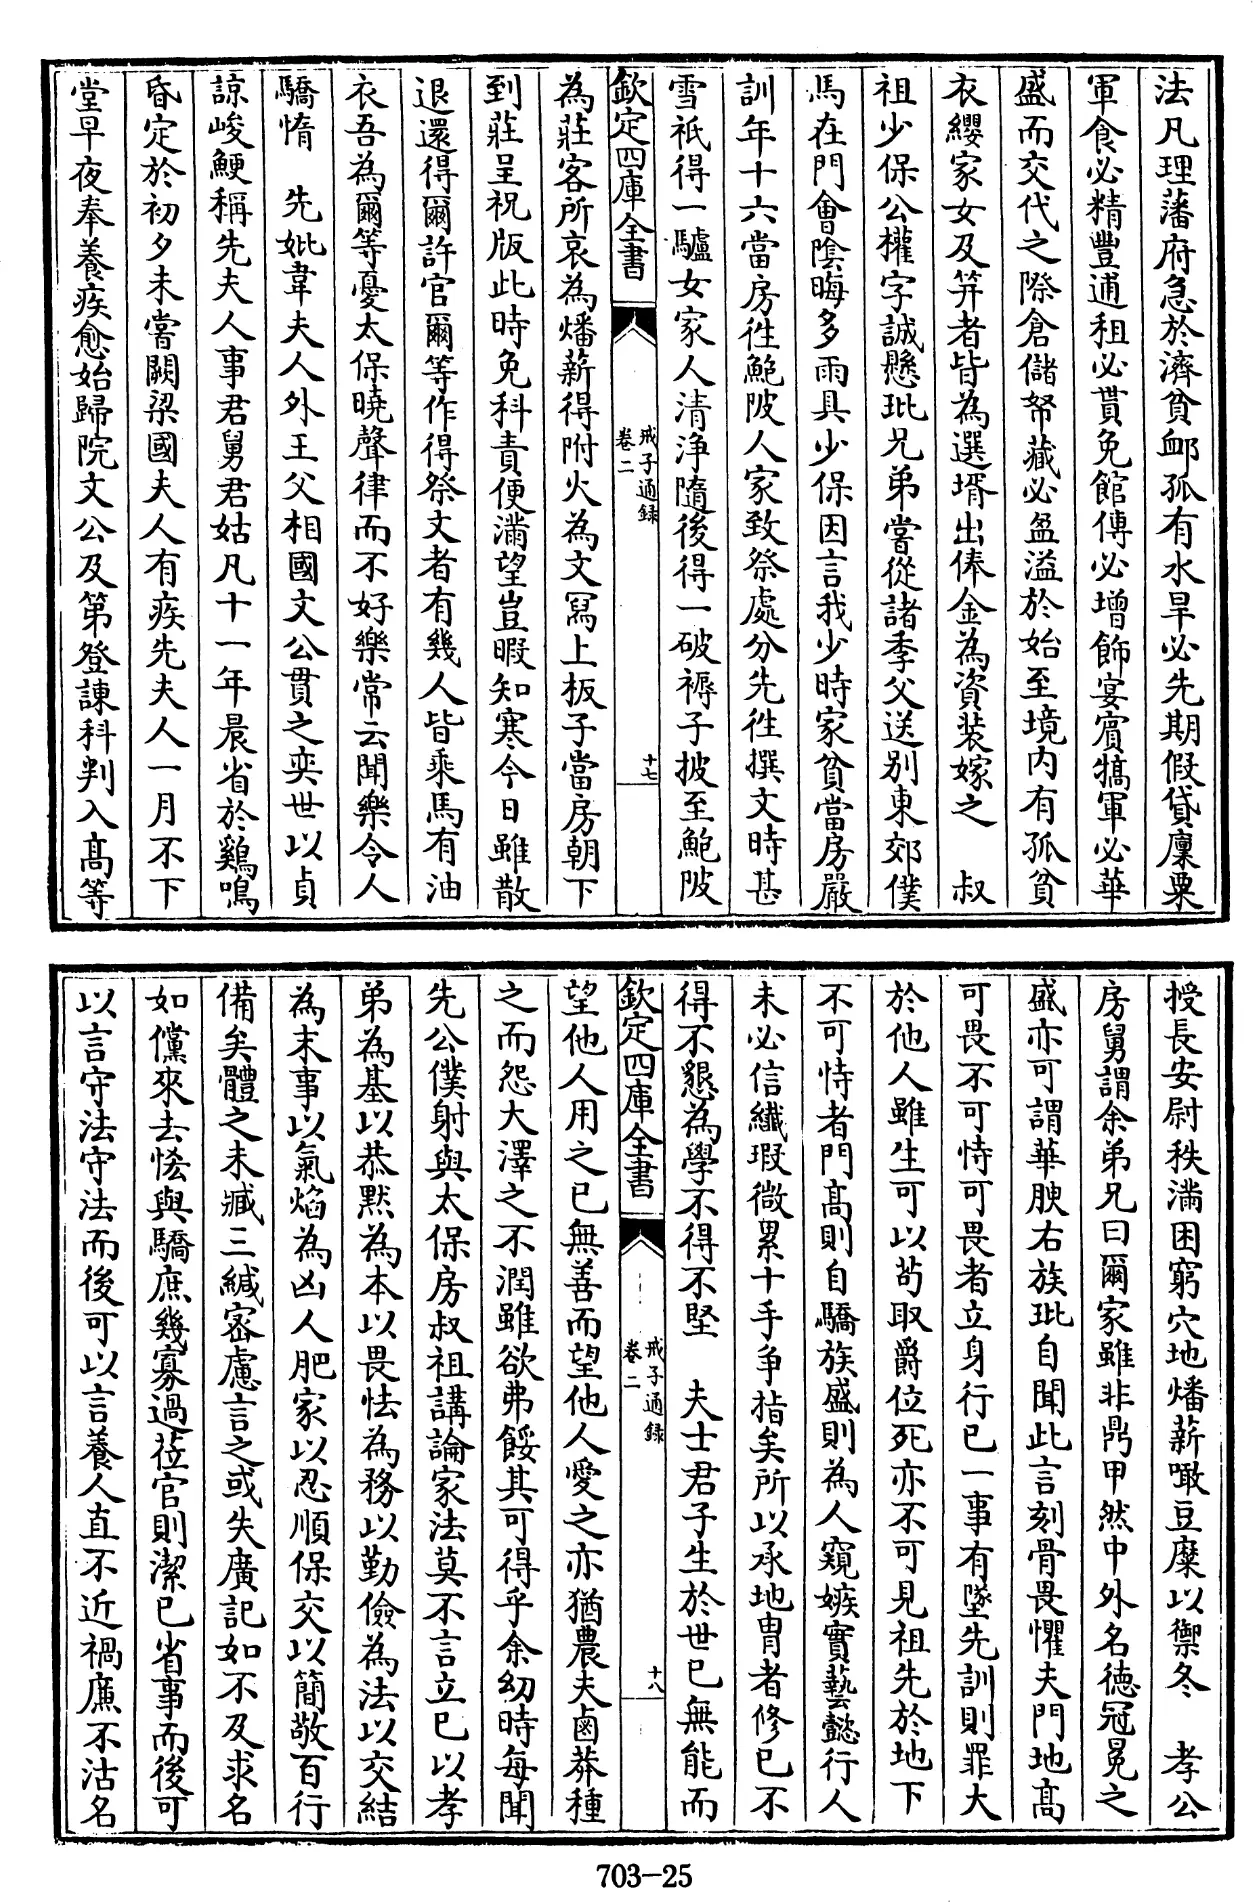 法凡理藩府急於濟貧卹孤有水旱必先期假貸廩粟
軍食必精豐逋租必貰免館傳必增飾宴賔犒軍必華
盛而交代之際倉儲帑藏必盈溢於始至境内有孤貧
衣纓家女及笄者皆為選壻出俸金為資装嫁之　叔
祖少保公權字誠懸玭兄弟嘗從諸季父送别東郊僕
馬在門會陰晦多雨具少保因言我少時家貧當房嚴
訓年十六當房徃鮑陂人家致祭處分先徃撰文時甚
雪祇得一驢女家人清浄隨後得一破褥子披至鮑陂
欽定四庫全書
戒子通録
卷二
十七
為莊客所哀為燔薪得附火為文冩上板子當房朝下
到莊呈祝版此時免科責便滿望豈暇知寒今日雖散
退還得爾許官爾等作得祭文者有幾人皆乘馬有油
衣吾為爾等憂太保曉聲律而不好樂常云聞樂令人
驕惰　先妣韋夫人外王父相國文公貫之奕世以貞
諒峻鯁稱先夫人事君舅君姑凡十一年晨省於鷄鳴
昏定於初夕未嘗闕梁國夫人有疾先夫人一月不下
堂早夜奉養疾愈始歸院文公及第登諫科判入髙等
授長安尉秩滿困窮穴地燔薪噉豆糜以禦冬　孝公
房舅謂余弟兄曰爾家雖非鼎甲然中外名德冠冕之
盛亦可謂華腴右族玭自聞此言刻骨畏懼夫門地髙
可畏不可恃可畏者立身行已一事有墜先訓則罪大
於他人雖生可以茍取爵位死亦不可見祖先於地下
不可恃者門髙則自驕族盛則為人窺嫉實藝懿行人
未必信纖瑕微累十手争指矣所以承地胄者修已不
得不懇為學不得不堅　夫士君子生於世已無能而
欽定四庫全書
戒子通録
卷二
十八
望他人用之已無善而望他人愛之亦猶農夫鹵莽種
之而怨大澤之不潤雖欲弗餒其可得乎余幼時每聞
先公僕射與太保房叔祖講論家法莫不言立已以孝
弟為基以恭默為本以畏怯為務以勤儉為法以交結
為末事以氣焰為凶人肥家以忍順保交以簡敬百行
備矣體之未臧三緘密慮言之或失廣記如不及求名
如儻來去悋與驕庶幾寡過莅官則潔已省事而後可
以言守法守法而後可以言養人直不近禍廉不沽名
703-25